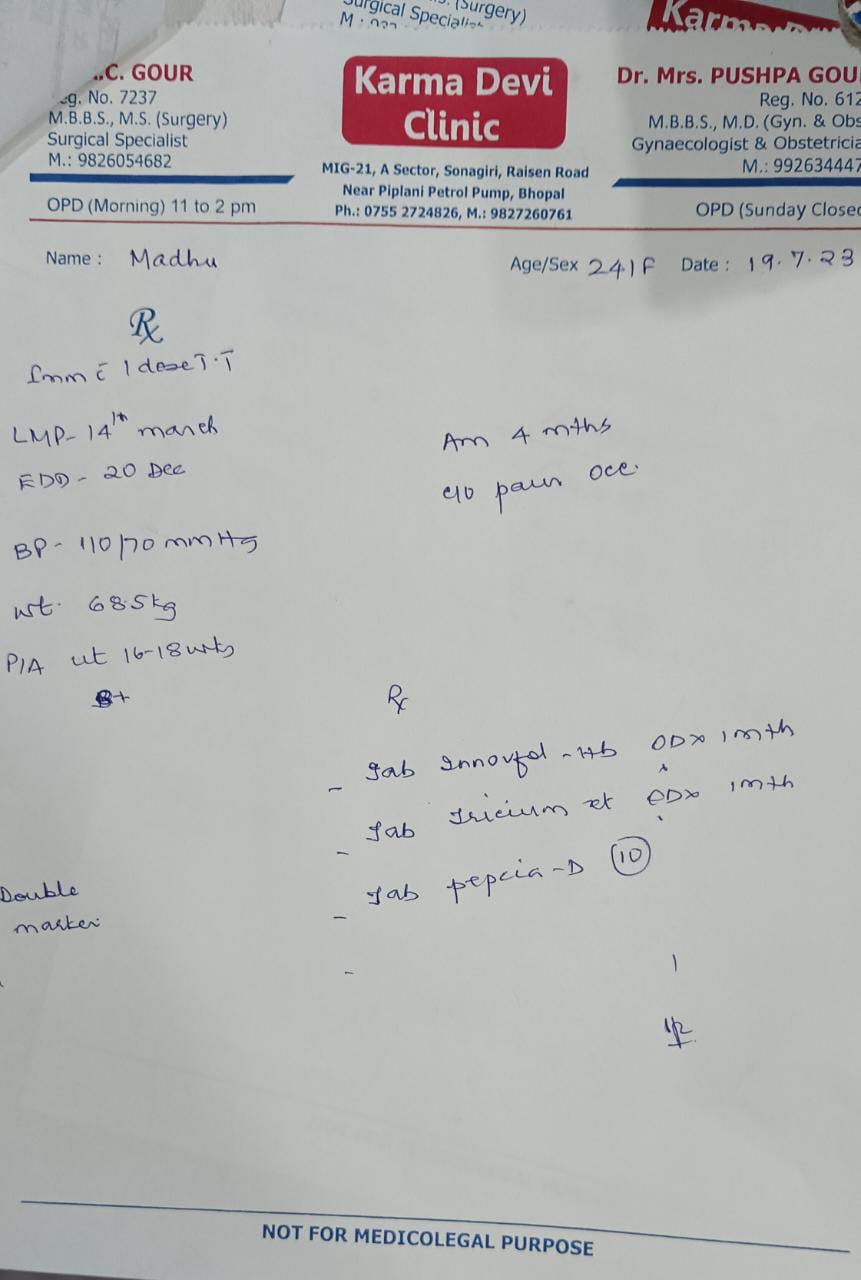 Surgical Specialist
(Surgery)
Karma
.C. GOUR
eg. No. 7237
M.B.B.S., M.S. (Surgery)
Surgical Specialist
M.: 9826054682
OPD (Morning) 11 to 2 pm
Karma Devi
Clinic
MIG-21, A Sector, Sonagiri, Raisen Road
Near Piplani Petrol Pump, Bhopal
Ph.: 0755 2724826, M.: 9827260761
Dr. Mrs. PUSHPA GOU
Reg. No. 612
M.B.B.S., M.D. (Gyn. & Obs
Gynaecologist & Obstetricia
M.: 992634447
OPD (Sunday Closed
Name : Madhu Age/Sex 24/F Date : 19.7.23
Rx
Imm c̄ 1 dose T.T
LMP- 14th march
Am 4 mths
EDD - 20 Dec
c/o pain occ.
BP- 110/70 mmHg
wt. 68.5kg
P/A ut 16-18wks
B+
Rx
- Tab Innovfol -Hb ODx 1 mth
- Tab Tricium xt ODx 1mth
- Tab pepcia-D 10
Double
marker
-
NOT FOR MEDICOLEGAL PURPOSE